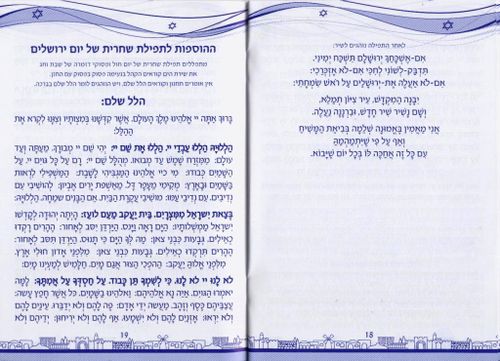 לאחר התפילה נוהגים לשיר:
אִם-אֶשְׁכָּחֵךְ יְרוּשָׁלָיִם תִּשְׁכַּח יְמִינִי.
תִּדְבַּק-לְשׁוֹנִי לְחִכִּי אִם-לֹא אֶזְכְּרֵכִי.
אִם-לֹא אַעֲלֶה אֶת-יְרוּשָׁלַיִם עַל רֹאשׁ שִׂמְחָתִי:
יִבָּנֶה הַמִּקְדָּשׁ, עִיר צִיּוֹן תְּמַלֵּא,
וְשָׁם נָשִׁיר שִׁיר חָדָשׁ, וּבִרְנָנָה נַעֲלֶה.
אֲנִי מַאֲמִין בֶּאֱמוּנָה שְׁלֵמָה בְּבִיאַת הַמָּשִׁיחַ
וְאַף עַל פִּי שֶׁיִּתְמַהְמֵהַּ
עִם כָּל זֶה אֲחַכֶּה לוֹ בְּכָל יוֹם שֶׁיָּבוֹא.
18
ההוספות לתפילת שחרית של יום ירושלים
מתפללים תפילת שחרית של יום חול ופסוקי דזמרה של שבת וחג
את שירת הים קוראים הקהל בנעימה פסוק בפסוק עם החזן.
אין אומרים תחנון וקוראים הלל שלם, ויש הנוהגים לומר הלל שלם בברכה.
הלל שלם:
בָּרוּךְ אַתָּה יי אֱלֹהֵינוּ מֶלֶךְ הָעוֹלָם. אֲשֶׁר קִדְּשָׁנוּ בְּמִצְוֹתָיו וְצִוָּנוּ לִקְרֹא אֶת
הַהַלֵּל:
הַלְלוּיָהּ הַלְלוּ עַבְדֵי יי. הַלְלוּ אֶת שֵׁם יי: יְהִי שֵׁם יי מְבֹרָךְ. מֵעַתָּה וְעַד
עוֹלָם: מִמִּזְרַח שֶׁמֶשׁ עַד מְבוֹאוֹ. מְהֻלָּל שֵׁם יי: רָם עַל כָּל גּוֹיִם יי. עַל
הַשָּׁמַיִם כְּבוֹדוֹ: מִי כַּיי אֱלֹהֵינוּ הַמַּגְבִּיהִי לָשָׁבֶת. הַמַּשְׁפִּילִי לִרְאוֹת
בַּשָּׁמַיִם וּבָאָרֶץ: מְקִימִי מֵעָפָר דָּל. מֵאַשְׁפֹּת יָרִים אֶבְיוֹן: לְהוֹשִׁיבִי עִם
נְדִיבִים. עִם נְדִיבֵי עַמּוֹ: מוֹשִׁיבִי עֲקֶרֶת הַבַּיִת. אֵם הַבָּנִים שְׂמֵחָה. הַלְלוּיָהּ:
בְּצֵאת יִשְׂרָאֵל מִמִּצְרָיִם. בֵּית יַעֲקֹב מֵעַם לֹעֵז: הָיְתָה יְהוּדָה לְקָדְשׁוֹ
יִשְׂרָאֵל מַמְשְׁלוֹתָיו: הַיָּם רָאָה וַיָּנֹס. הַיַּרְדֵּן יִסֹּב לְאָחוֹר: הֶהָרִים רָקְדוּ
כְאֵילִים. גְּבָעוֹת כִּבְנֵי צֹאן: מַה לְּךָ הַיָּם כִּי תָנוּס. הַיַּרְדֵּן תִּסֹּב לְאָחוֹר:
הֶהָרִים תִּרְקְדוּ כְאֵילִים. גְּבָעוֹת כִּבְנֵי צֹאן: מִלִּפְנֵי אָדוֹן חוּלִי אָרֶץ.
מִלִּפְנֵי אֱלוֹהַּ יַעֲקֹב: הַהֹפְכִי הַצּוּר אֲגַם מָיִם. חַלָּמִישׁ לְמַעְיְנוֹ מָיִם:
לֹא לָנוּ יי לֹא לָנוּ. כִּי לְשִׁמְךָ תֵּן כָּבוֹד. עַל חַסְדְּךָ עַל אֲמִתֶּךָ: לָמָּה
יֹאמְרוּ הַגּוֹיִם. אַיֵּה נָא אֱלֹהֵיהֶם: וֵאלֹהֵינוּ בַשָּׁמָיִם. כֹּל אֲשֶׁר חָפֵץ עָשָׂה:
עֲצַבֵּיהֶם כֶּסֶף וְזָהָב. מַעֲשֵׂה יְדֵי אָדָם: פֶּה לָהֶם וְלֹא יְדַבֵּרוּ. עֵינַיִם לָהֶם
וְלֹא יִרְאוּ: אָזְנַיִם לָהֶם וְלֹא יִשְׁמָעוּ. אַף לָהֶם וְלֹא יְרִיחוּן: יְדֵיהֶם וְלֹא
19